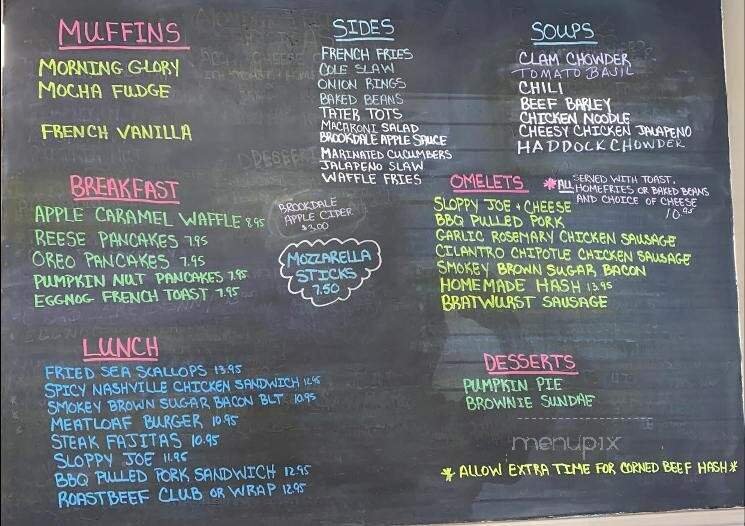 MUFFINS
MORNING GLORY
MOCHA FUDGE
FRENCH VANILLA
SIDES
FRENCH FRIES
COLE SLAW
ONION RINGS
BAKED BEANS
TATER TOTS
MACARONI SALAD
BROOKDALE APPLE SAUCE
MARINATED CUCUMBERS
JALAPENO SLAW
WAFFLE FRIES
SOUPS
CLAM CHOWDER
TOMATO BASIL
CHILI
BEEF BARLEY
CHICKEN NOODLE
CHEESY CHICKEN JALAPENO
HADDOCK CHOWDER
BREAKFAST
APPLE CARAMEL WAFFLE 8.95
REESE PANCAKES 7.95
OREO PANCAKES 7.95
PUMPKIN NUT PANCAKES 7.95
EGGNOG FRENCH TOAST 7.95
BROOKDALE
APPLE CIDER
$3.00
MOZZARELLA
STICKS
7.50
OMELETS *ALL SERVED WITH TOAST,
HOMEFRIES OR BAKED BEANS
AND CHOICE OF CHEESE
10.95
SLOPPY JOE + CHEESE
BBQ PULLED PORK
GARLIC ROSEMARY CHICKEN SAUSAGE
CILANTRO CHIPOTLE CHICKEN SAUSAGE
SMOKEY BROWN SUGAR BACON
HOMEMADE HASH 13.95
BRATWURST SAUSAGE
LUNCH
FRIED SEA SCALLOPS 13.95
SPICY NASHVILLE CHICKEN SANDWICH 12.95
SMOKEY BROWN SUGAR BACON BLT 10.95
MEATLOAF BURGER 10.95
STEAK FAJITAS 10.95
SLOPPY JOE 11.95
BBQ PULLED PORK SANDWICH 12.95
ROASTBEEF CLUB OR WRAP 12.95
DESSERTS
PUMPKIN PIE
BROWNIE SUNDAE
menupix
* ALLOW EXTRA TIME FOR CORNED BEEF HASH *